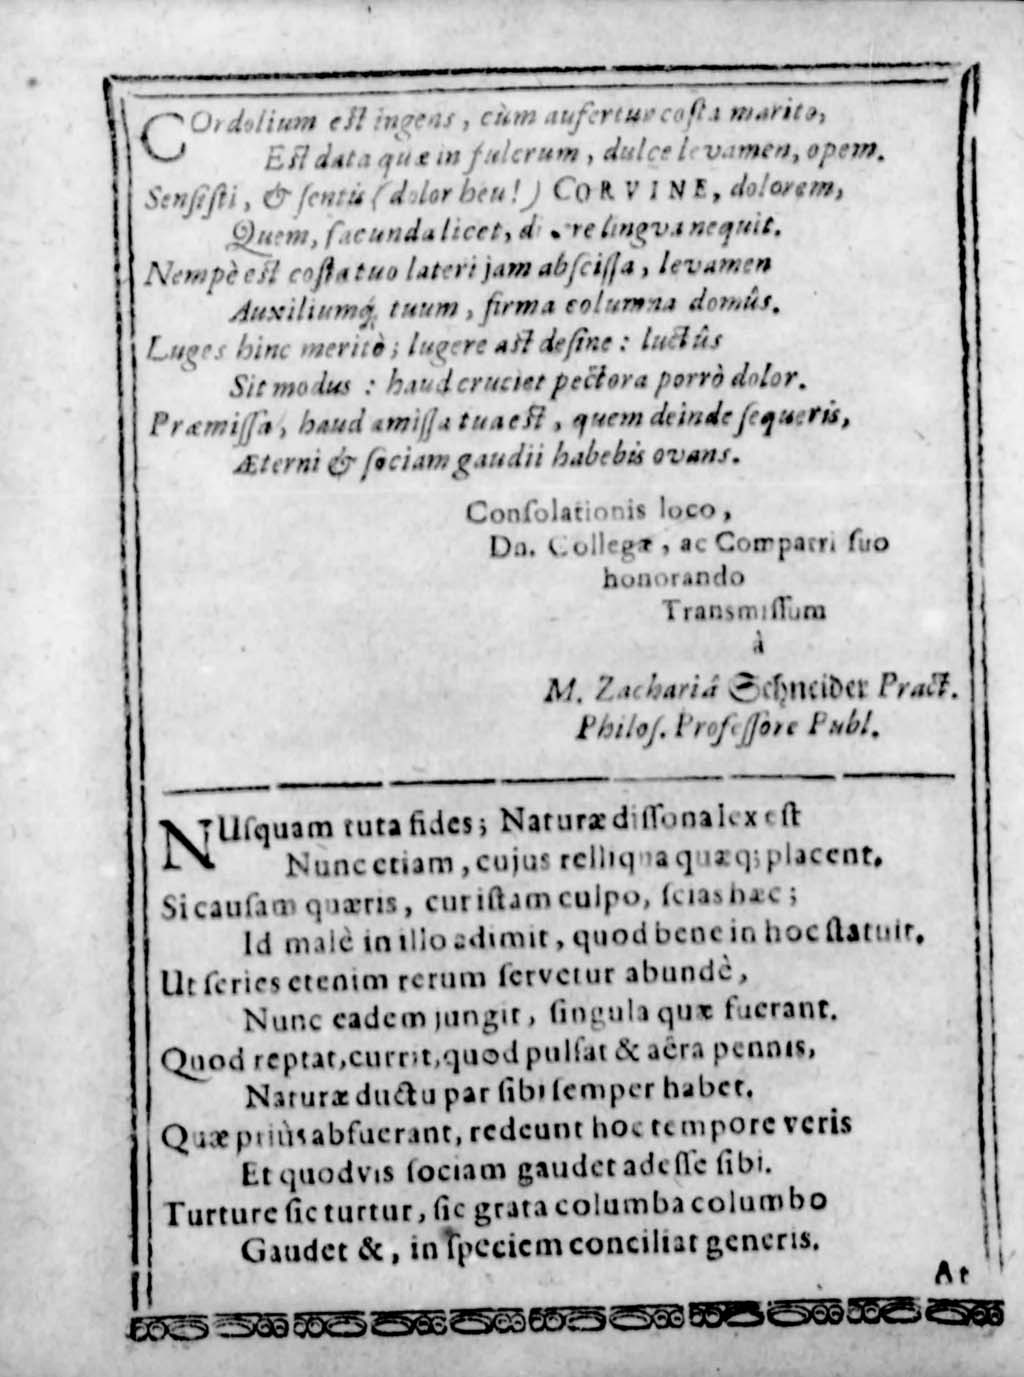 COrdolium est ingens, cùm aufertur costa marito,
Est data quæ in fulcrum, dulce levamen, opem.
Sensisti, & sentis (dolor heu!) CORVINE, dolorem,
Quem, facunda licet, lingva nequit.
Nempè est costa tuo lateri jam abscissa, levamen
Auxiliumq́; tuum, firma columna domûs.
Luges hinc meritò; lugere ast desine: luctûs
Sit modus: haud cruciet pectora porrò dolor.
Præmissa, haud amissa tua est, quem deinde sequeris,
Æterni & sociam gaudii habebis ovans.
Consolationis loco,
Dn. Collegæ, ac Compatri suo
honorando
Transmissum
à
M. Zachariâ Schneider Pract.
Philos. Professore Publ.
NUsquam tuta fides; Naturæ dissona lex est
Nunc etiam, cujus relliqua quæq; placent.
Si causam quæris, cur istam culpo, scias hæc;
Id malè in illo adimit, quod bene in hoc statuit.
Ut series etenim rerum servetur abundè,
Nunc eadem jungit, singula quæ fuerant.
Quod reptat, currit, quod pulsat & aëra pennis,
Naturæ ductu par sibi semper habet.
Quæ priùs abfuerant, redeunt hoc tempore veris
Et quodvis sociam gaudet adesse sibi.
Turture sic turtur, sic grata columba columbo
Gaudet &, in speciem conciliat generis.
At